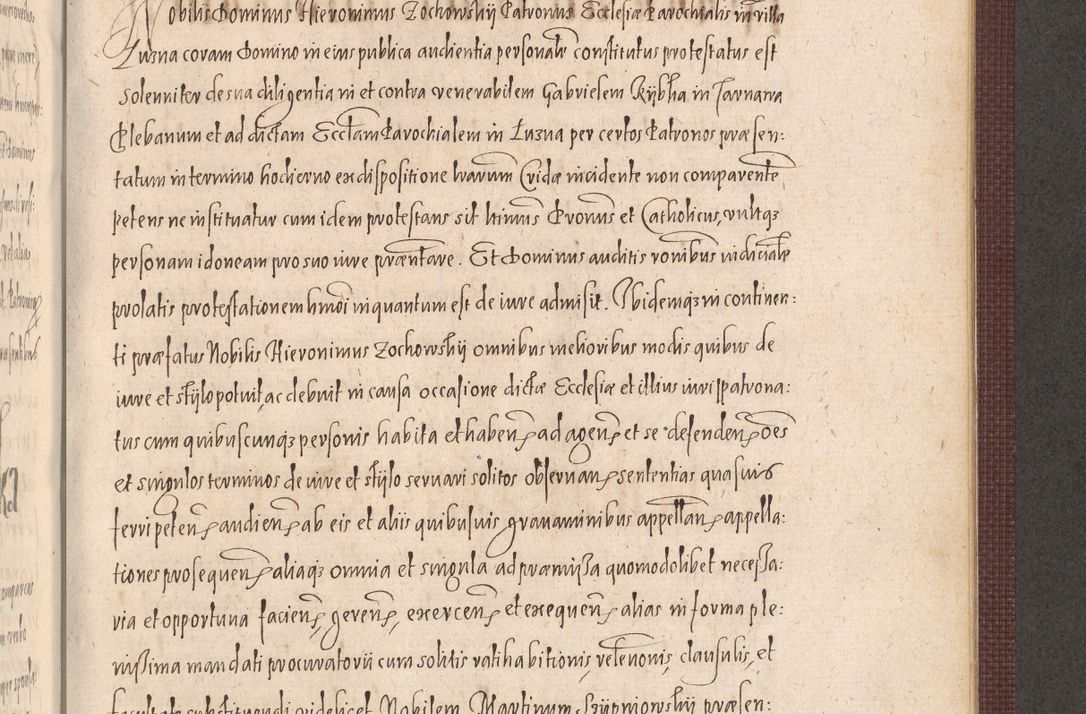 Nobilis Dominus Hieronimus Zochowskij Patronus Ecclesiæ Parochialis in villa
Luzna coram Domino in eius publica audientia personalr constitutus protestatus est
solenniter de sua diligentia in et contra venerabilem Gabrielem Rijbka in Tarnawa
Plebanum et ad dictam Ecclam Parochialem in Luzna per certos Patronos præsen:
tatum in termino hodierno ex dispositione lrarum Cridæ incidente non comparente
petens ne instituatur cum idem protestans sit himus Pronus et Catholicus, vultqз
personam idoneam pro suo iure præntare. Et Dominus auditis ronibus iudicialr
prolatis protestationem hmoi in quantum est de iure admisit. Ibidemqз in continen:
ti præfatus Nobilis Hieronimus Zochowskij omnibus melioribus modis quibus de
iure et stylo potuit, ac debuit in causa occasione dictæ Ecclesiæ et illius iurispatrona:
tus cum quibuscunqз personis habita et haben ad agen et se defenden oes
et singulos terminos de iure et stijlo seruari solitos obseruan sententias quasuis
ferri peten audien ab eis et aliis quibusuis grauaminibus appellan appella:
tiones prosequen aliaqз omnia et singula ad præmissa quomodolibet necessa:
ria et opportuna facien, geren, exercen et exequen alias in forma ple:
nissima mandati procuratorii cum solitis ratihabitionis, releuonis, clausulis, et
facultate substituendi videlicet Nobilem Martinum præsen: